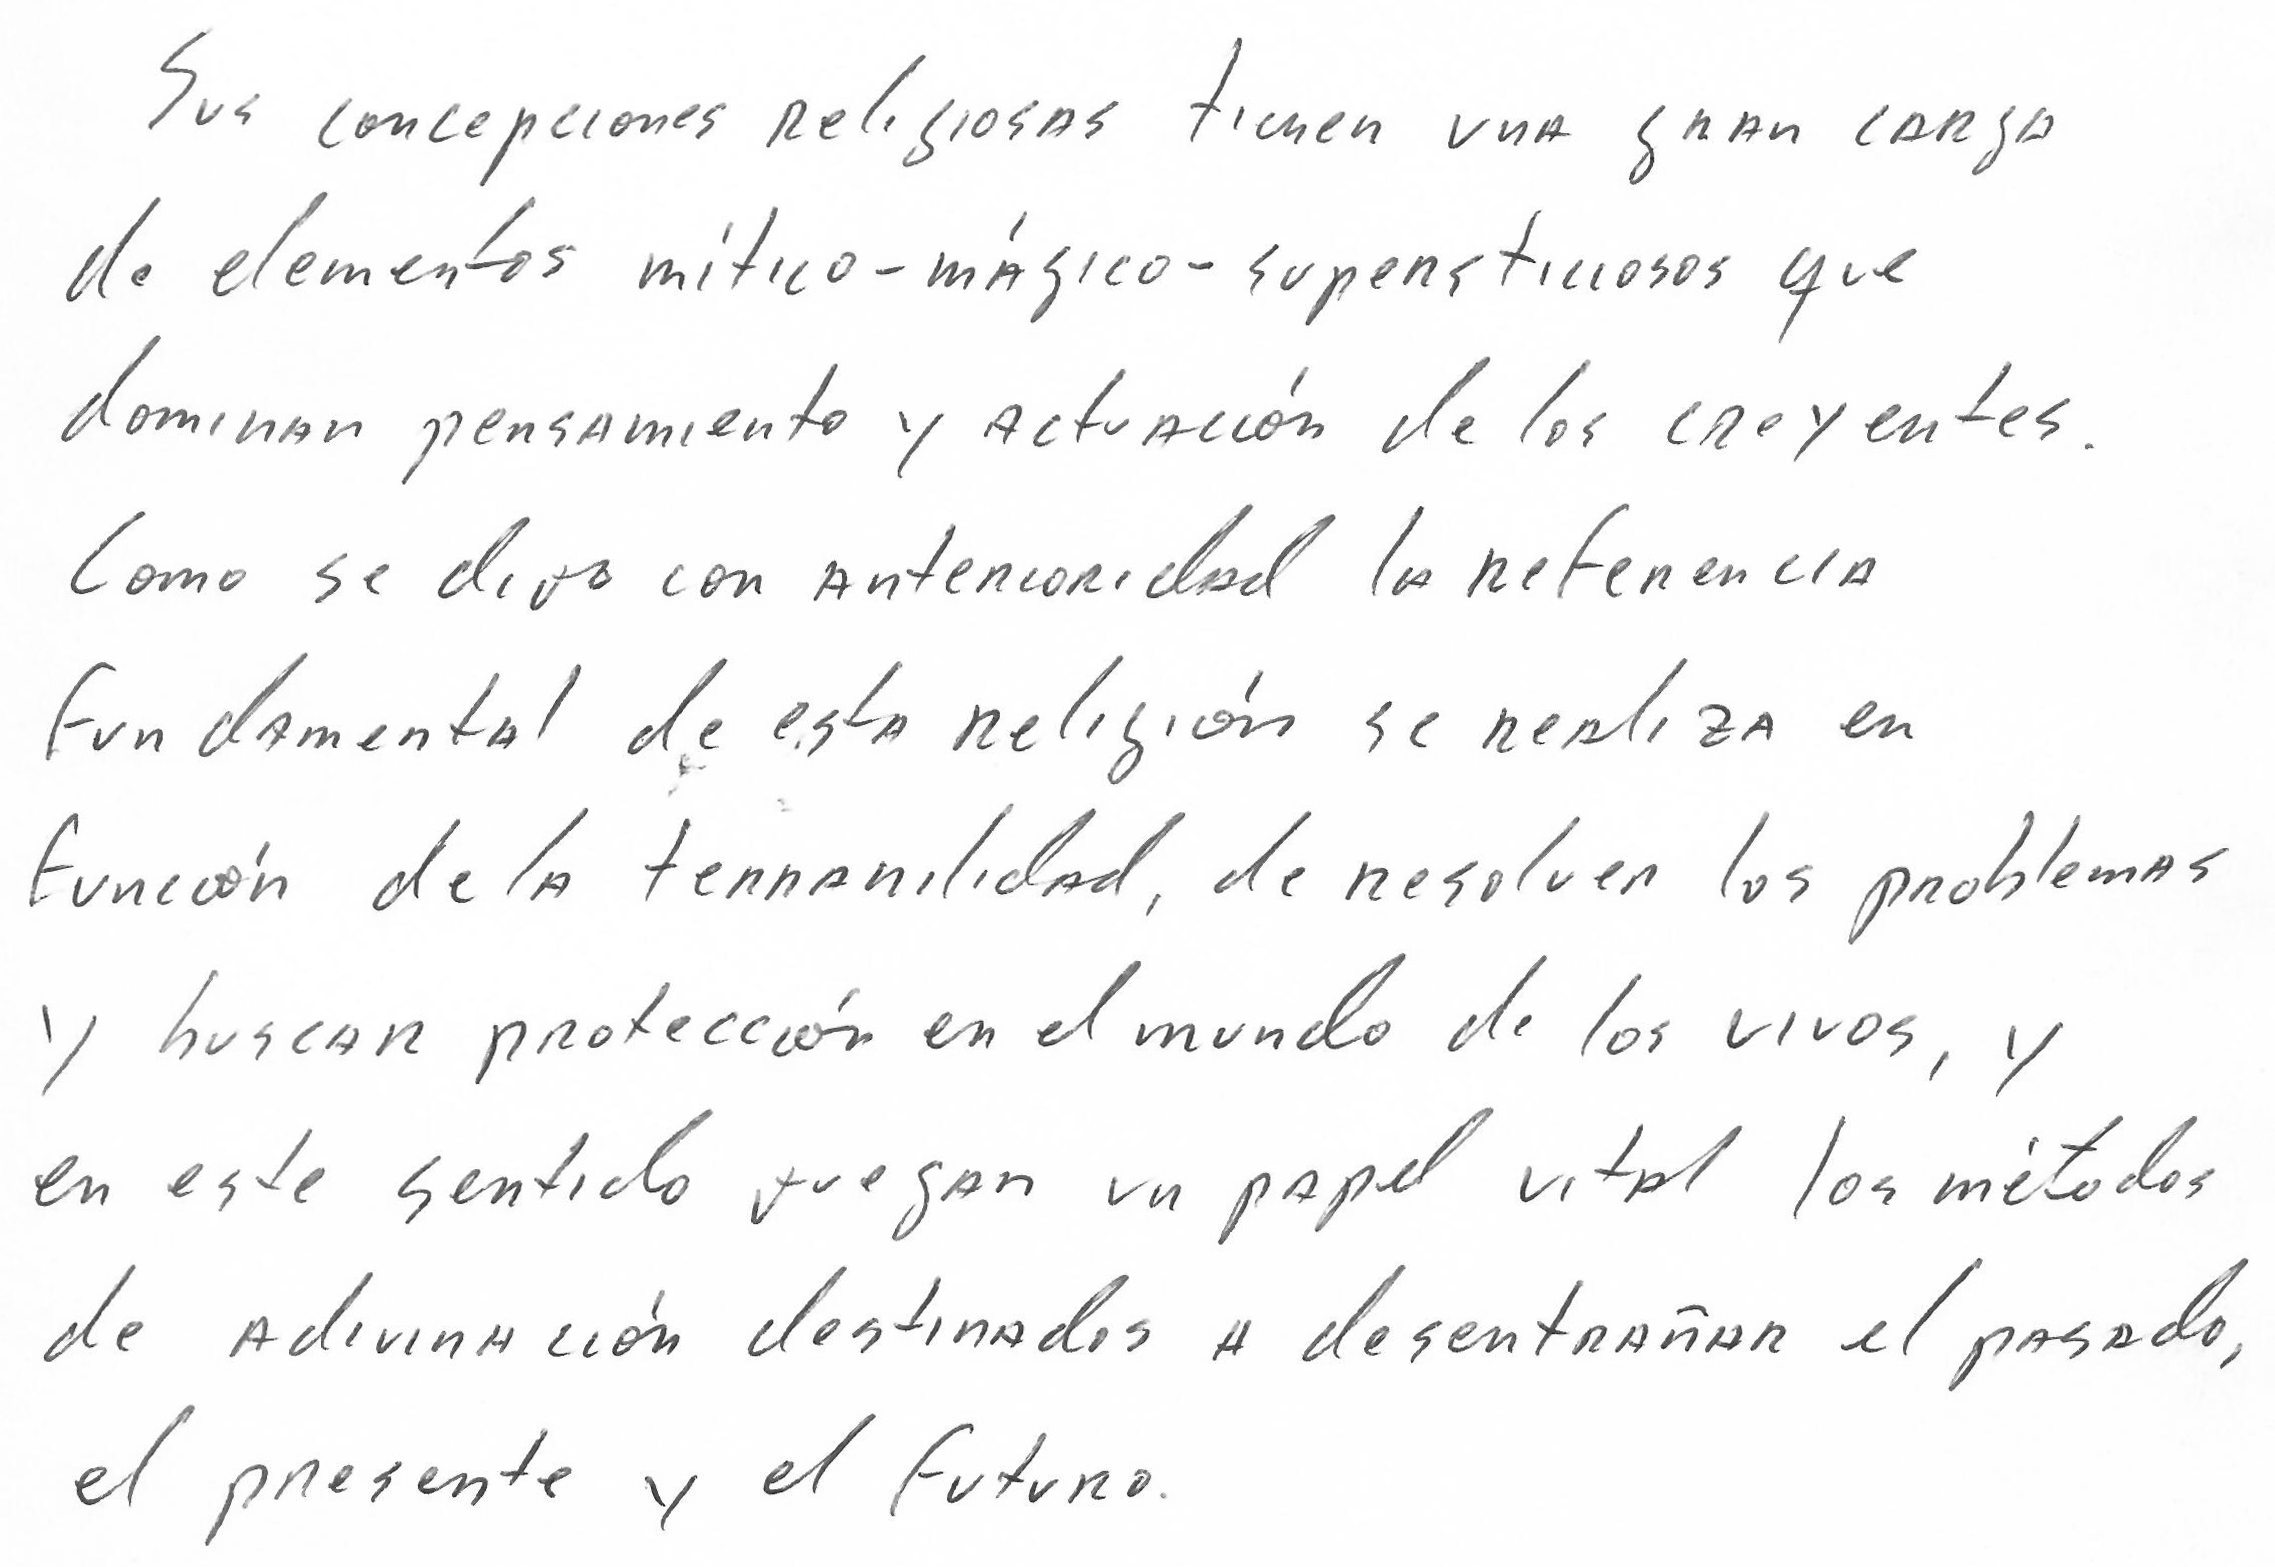 Sus concepciones religiosas tienen una gran carga
de elementos mítico-mágico-supersticiosos que
dominan pensamiento y actuación de los creyentes.
Como se dijo con anterioridad la referencia
fundamental de esta religión se realiza en
función de la terranilidad, de resolver los problemas
y buscar protección en el mundo de los vivos, y
en este sentido juegan un papel vital los métodos
de adivinación destinados a desentrañar el pasado,
el presente y el futuro.